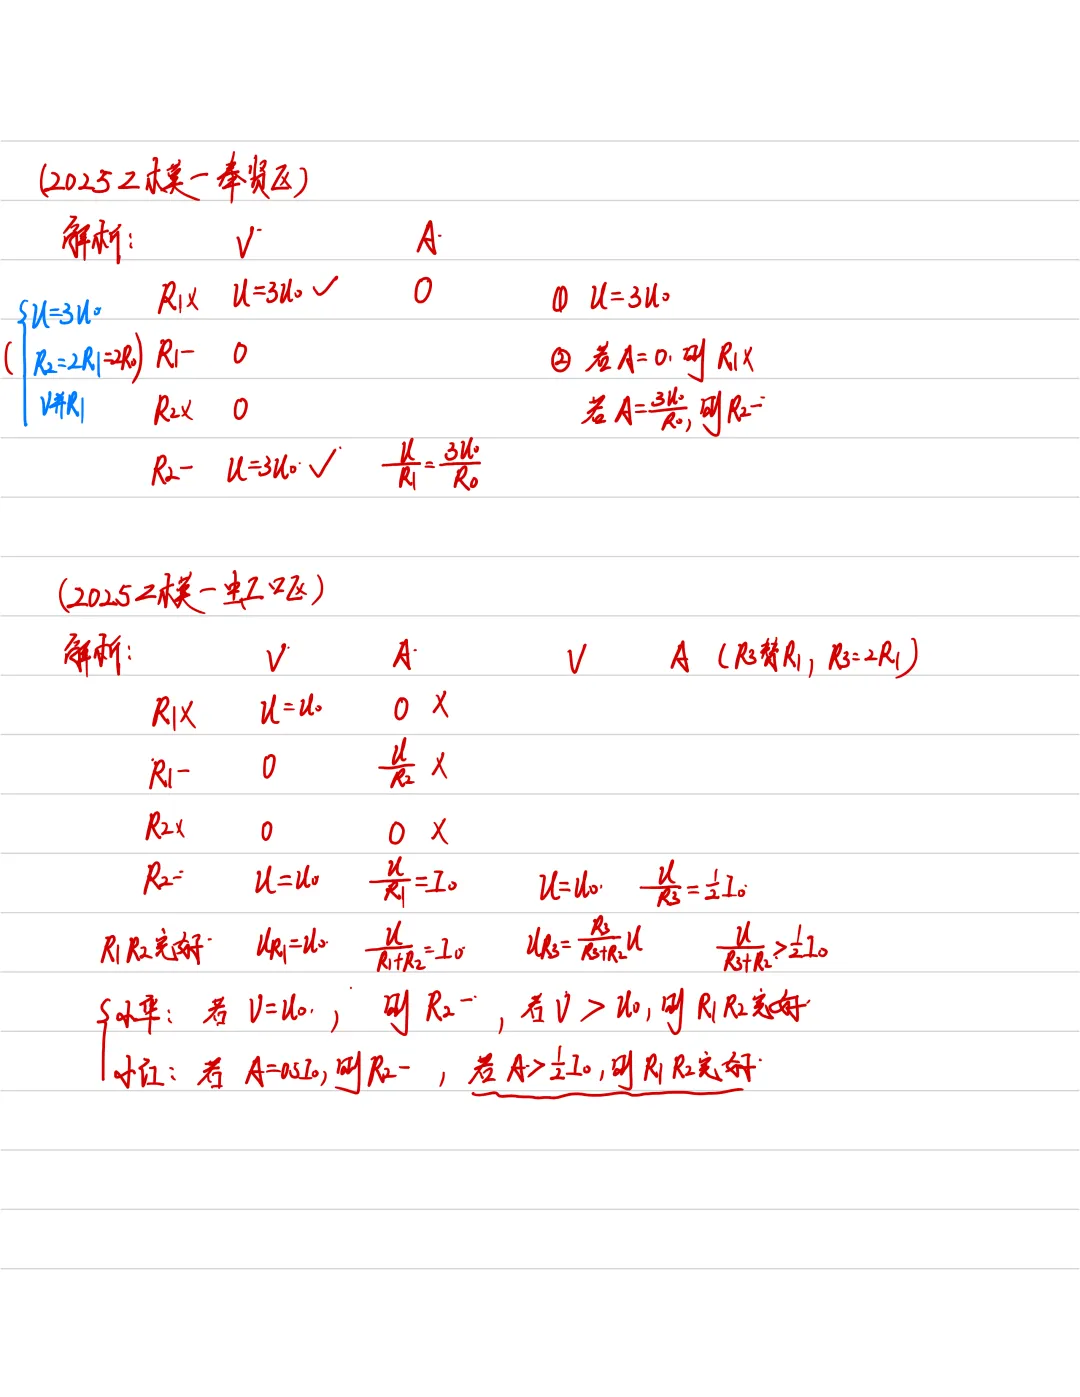 (2025二模一奉贤区)
解析: V A
R1× U=3U0 ✓ 0 ① U=3U0
{U=3U0
(R2=2R1=2R0) R1− 0 ② 若A=0, 则R1×
V并R1 R2× 0 若A=3U0/R0, 则R2−
R2− U=3U0 ✓ U/R1=3U0/R0
(2025二模一虹口区)
解析: V A V A (R3替R1, R3=2R1)
R1× U=U0 0 ×
R1− 0 U/R2 ×
R2× 0 0 ×
R2− U=U0 U/R1=I0 U=U0 U/R3=1/2I0
R1R2完好 UR1=U0 U/R1+R2=I0 UR3=R3/R3+R2 U U/R3+R2>1/2I0
{小华: 若V=U0, 则R2−, 若V>U0, 则R1R2完好
小红: 若A=0.5I0, 则R2−, 若A>1/2I0, 则R1R2完好